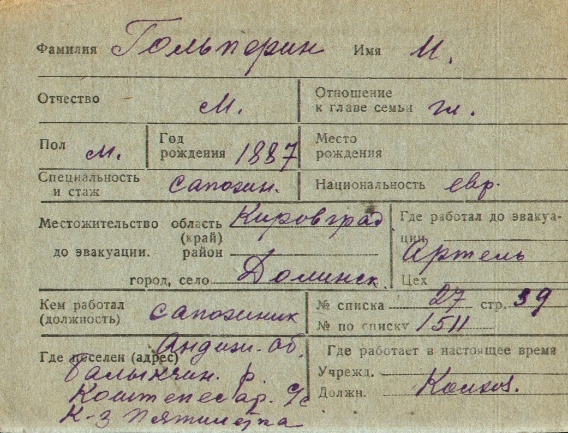 Фамилия Гольперин Имя М.
Отчество М. Отношение к главе семьи гл.
Пол м. Год рождения 1887 Место рождения
Специальность и стаж сапожн. Национальность евр.
Местожительство область (край) Кировград Где работал до эвакуации Артель
до эвакуации. район
город, село Долинск Цех
Кем работал (должность) сапожник № списка 27 стр. 39
№ по списку 1511
Где поселен (адрес) Андиж. об. Где работает в настоящее время
Балыкчин. р. Учрежд.
с/с Должн. Колхоз.
к-з Пятилетка